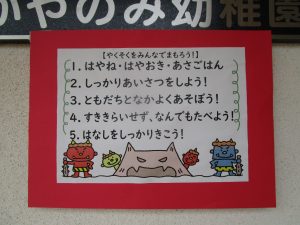 かやのみ幼稚園
【やくそくをみんなでまもろう！】
1．はやね・はやおき・あさごはん
2．しっかりあいさつをしよう！
3．ともだちとなかよくあそぼう！
4．すききらいせず、なんでもたべよう！
5．はなしをしっかりきこう！